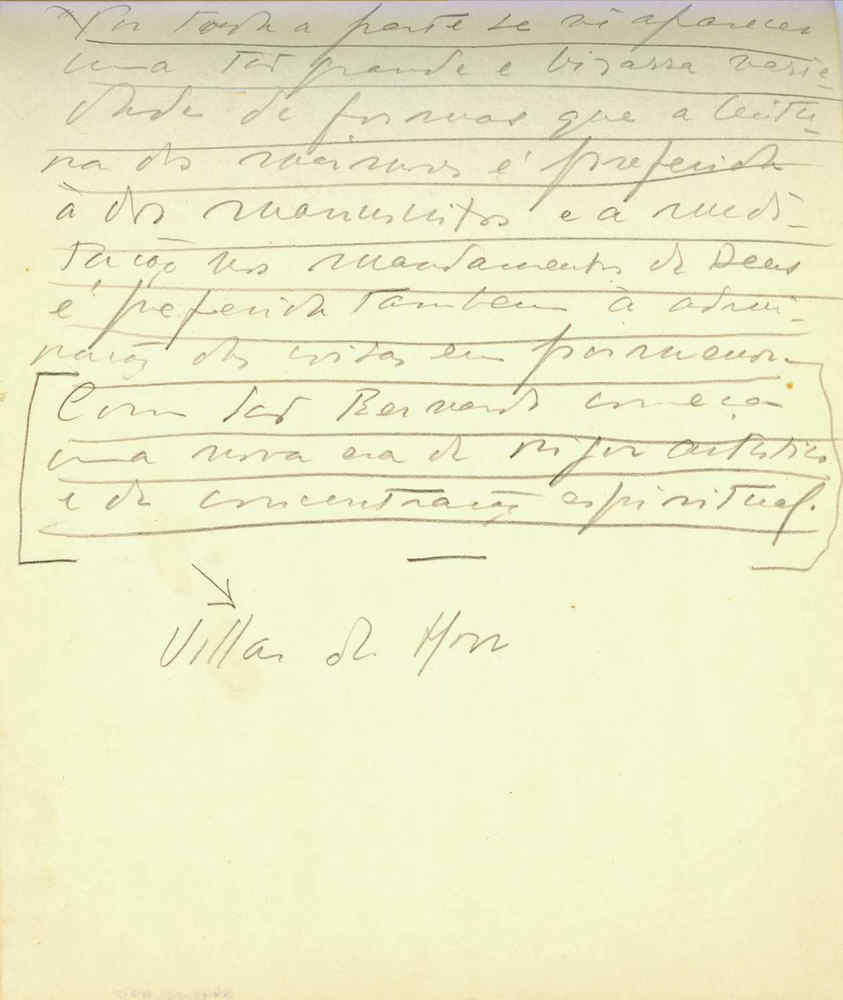 Por toda a parte se vê aparecer
uma tão grande e bizarra varie-
dade de formas que a leitu-
ra dos mármores é preferida
à dos manuscritos e a medi-
tação nos mandamentos de Deus
é preferida também à admi-
ração das coisas em pormenor.
Com São Bernardo começa
uma nova era de rigor artístico
e de concentração espiritual.
Villar de